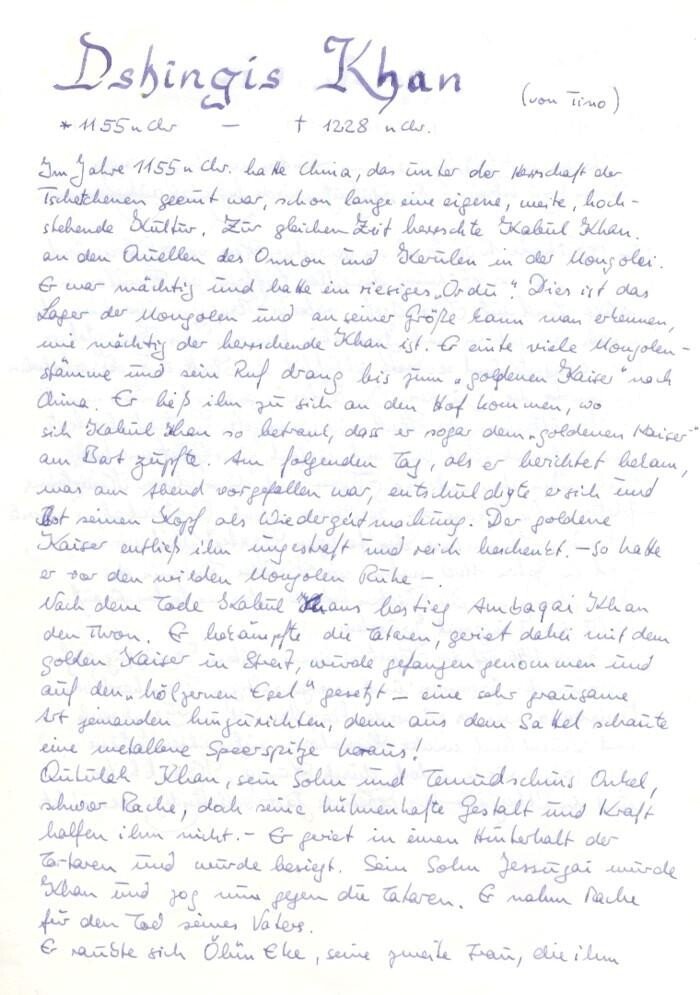 Dshingis Khan
(von Tino)
* 1155 n Chr — † 1228 n Chr.
Im Jahre 1155 n Chr. hatte China, das unter der Herrschaft der
Tschetchenen geeint war, schon lange eine eigene, weite, hoch-
stehende Kultur. Zur gleichen Zeit herrschte Kabul Khan.
an den Quellen des Onnon und Kerulen in der Mongolei.
Er war mächtig und hatte ein riesiges „Ordu". Dies ist das
Lager der Mongolen und an seiner Größe kann man erkennen,
wie mächtig der herrschende Khan ist. Er einte viele Mongolen-
stämme und sein Ruf drang bis zum „goldenen Kaiser" nach
China. Er hieß ihm zu sich an den Hof kommen, wo
sich Kabul Khan so betrank, dass er sogar dem „goldenen Kaiser"
am Bart zupfte. Am folgenden Tag, als er berichtet bekam,
was am Abend vorgefallen war, entschuldigte er sich und
bot seinen Kopf als Wiedergutmachung. Der goldene
Kaiser entließ ihm ungestraft und reich beschenkt. – So hatte
er vor den wilden Mongolen Ruhe –.
Nach dem Tode Kabul Khans bestieg Ambaqai Khan
den Thron. Er bekämpfte die Tataren, geriet dabei mit dem
golden Kaiser in Streit, wurde gefangen genommen und
auf den „hölzernen Esel" gesetzt – eine sehr grausame
Art jemanden hinzurichten, denn aus dem Sattel schaute
eine metallene Speerspitze heraus!
Qutulah Khan, sein Sohn und Temudschins Onkel,
schwor Rache, doch seine hühnenhafte Gestalt und Kraft
halfen ihm nicht. – Er geriet in einen Hinterhalt der
Tartaren und wurde besiegt. Sein Sohn Jessugai wurde
Khan und zog nun gegen die Tataren. Er nahm Rache
für den Tod seines Vaters.
Er raubte sich Ölün Eke, seine zweite Frau, die ihm